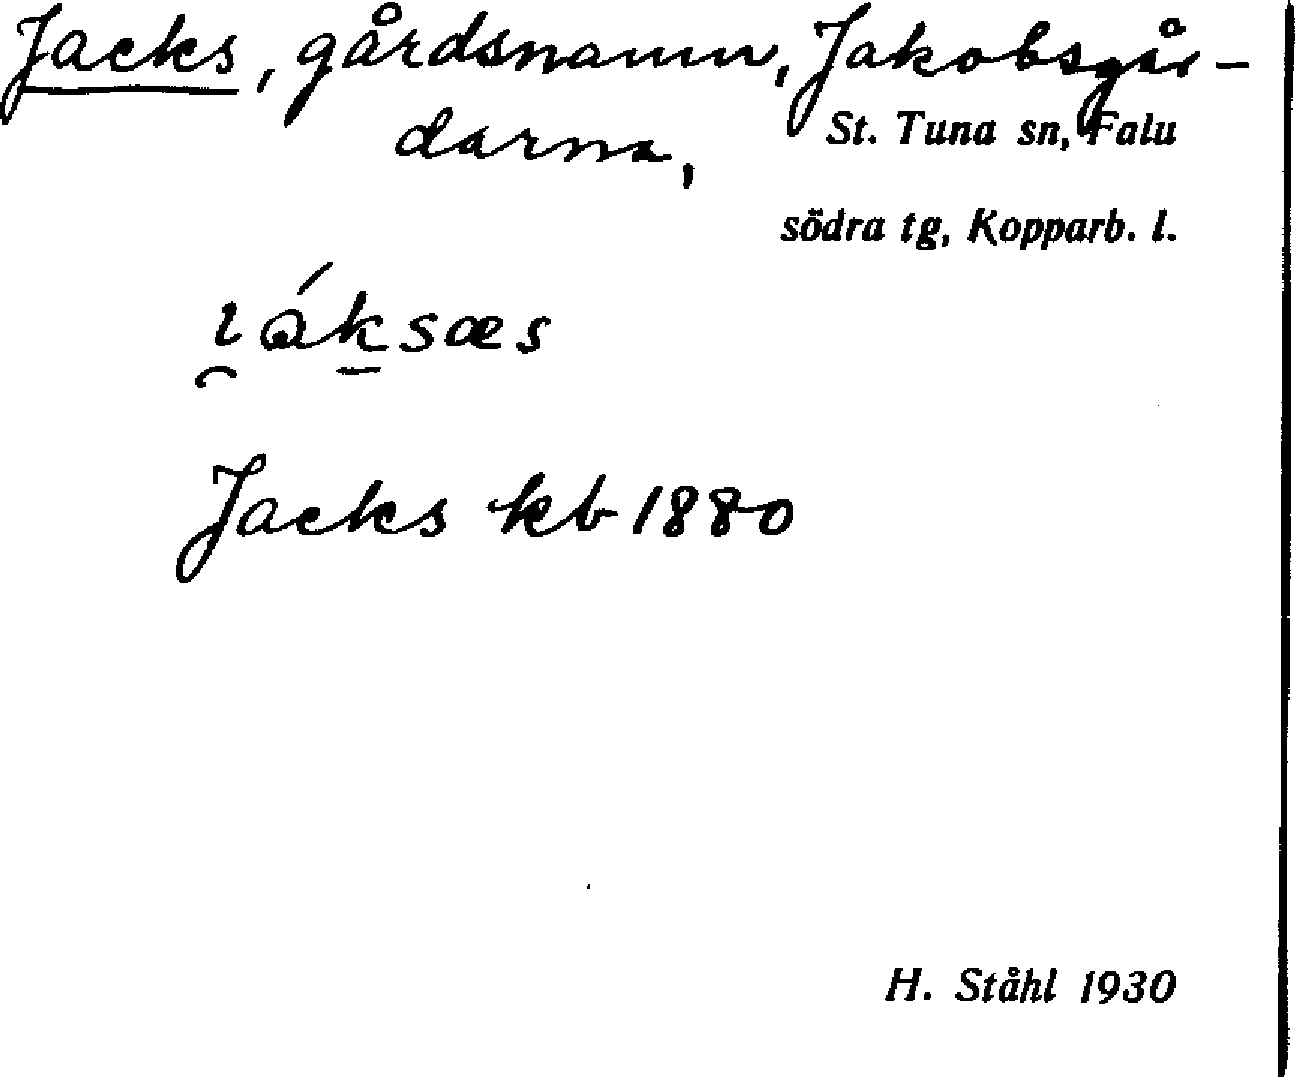 Jacks, gårdsnamn, Jakobsgår-
darna,
St. Tuna sn, Falu
södra tg, Kopparb. l.
i̯ák̠sæs
Jacks kb 1880
H. Ståhl 1930